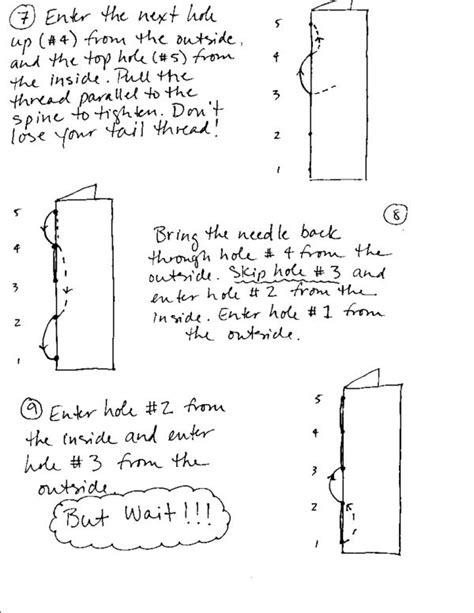 ⑦ Enter the next hole
up (#4) from the outside,
and the top hole (#5) from
the inside. Pull the
thread parallel to the
spine to tighten. Don't
lose your tail thread!
5
4
3
2
1
5
4
3
2
1
⑧
Bring the needle back
through hole #4 from the
outside. Skip hole #3 and
enter hole #2 from the
inside. Enter hole #1 from
the outside.
⑨ Enter hole #2 from
the inside and enter
hole #3 from the
outside.
But Wait!!!
5
4
3
2
1